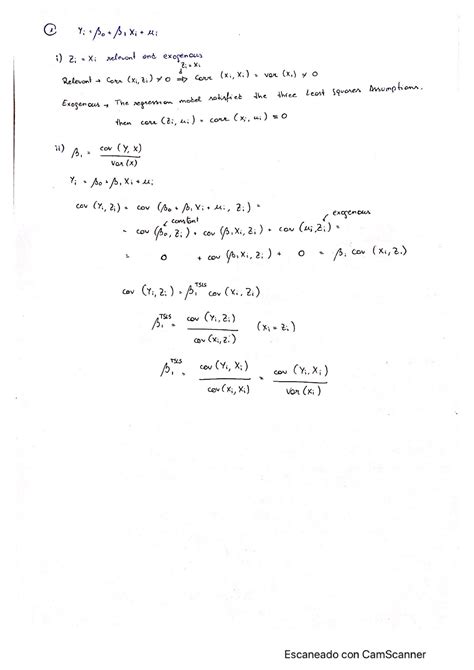 ① Yi = β0 + β1 Xi + ui
i) Zi = Xi relevant and exogenous
Zi = Xi
Relevant → Corr (Xi, Zi) ≠ 0 ⇒ Corr (Xi, Xi) = var (Xi) ≠ 0
Exogenous → The regression model satisfies the three Least Squares Assumptions.
then corr (Zi, ui) = corr (Xi, ui) = 0
ii) β1 = cov (Y, X) / var (X)
Yi = β0 + β1 Xi + ui
cov (Yi, Zi) = cov (β0 + β1 Xi + ui, Zi) =
constant exogenous
= cov (β0, Zi) + cov (β1 Xi, Zi) + cov (ui, Zi) =
= 0 + cov (β1 Xi, Zi) + 0 = β1 cov (Xi, Zi)
cov (Yi, Zi) = β1^TSLS cov (Xi, Zi)
β1^TSLS = cov (Yi, Zi) / cov (Xi, Zi) (Xi = Zi)
β1^TSLS = cov (Yi, Xi) / cov (Xi, Xi) = cov (Yi, Xi) / var (Xi)
Escaneado con CamScanner